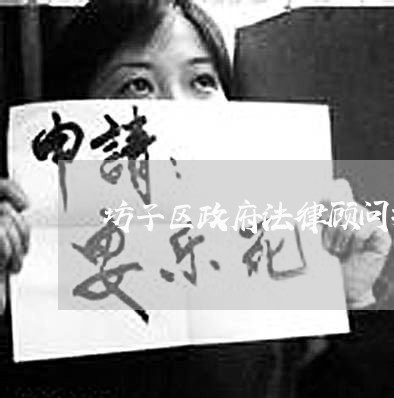 申請：
坊子区政府法律顾问
安乐死